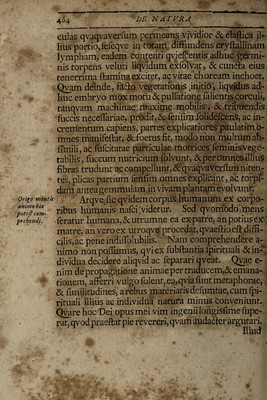 404 DE NATVRA
culas quaqvaversum permeans vividior & elastica il-
lius portio, seseqve in totam diffundens crystallinam
lympham, eadem contenti qviescentis adhuc germi-
nis torpens veluti liqvidum exsolvat, & cuncta ejus
tenerrima stamina exciter, ac vitæ choream inchoet.
Qvam deinde, facto vegetationis initio, liqvidus ad-
huc embryo mox motu & pulsatione salientis corculi,
tanqvam machinæ maximè mobilis, & tribuendis
succis necessariæ, prodit, & sensim solidescens, ac in-
crementum capiens, partes explicatiores paulatim o-
mnes manifestat, & foetus fit, modo non multum ab-
simili, ac suscitatæ particulæ motrices seminis vege-
tabilis, succum nutricium solvunt, & per omnes illius
fibras trudunt ac compellunt, & qvaqvaversum niten-
tes, plicas partium sensim omnes explicant, ac torpi-
dam antea gemmulam in vivam plantam evolvunt.
Origo mentis
an nobis
potest com-
prehendi.
Atqve sic qvidem corpus humanum ex corpo-
ribus humanis nasci videtur. Sed qvomodo mens
seratur humana, & utrumne ea ex patre, an potius ex
matre, an vero ex utroqve procedat, qvæstio est diffi-
cilis, ac pene indissolubilis. Nam comprehendere a-
nimo non possumus, qvi ex substantia spirituali & in-
dividua decidere aliqvid ac separari qveat. Qvæ e-
nim de propagatione animæ per traducem, & emana-
tionem, afferri vulgo solent, ea, qvia sunt metaphoræ,
& similitudines, a rebus materiatis desumtæ, cum spi-
rituali illius ac individua natura minus conveniunt.
Qvare hoc Dei opus mei vim ingenii longissime supe-
rat, qvod præstat pie revereri, qvam audacter argutari.
Illud